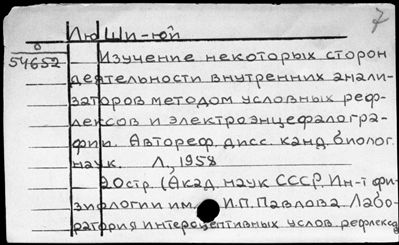 7
Лю Ши-юй
0
54652
Изучение некоторых сторон
деятельности внутренних анали-
заторов методом условных реф-
лексов и электроэнцефалогра-
фии. Автореф. дисс. канд. биолог.
наук. Л, 1958
20стр. (Акад. наук СССР. Ин-т фи-
зиологии им. И.П. Павлова. Лабо-
ратория интероцептивных услов. рефлексов